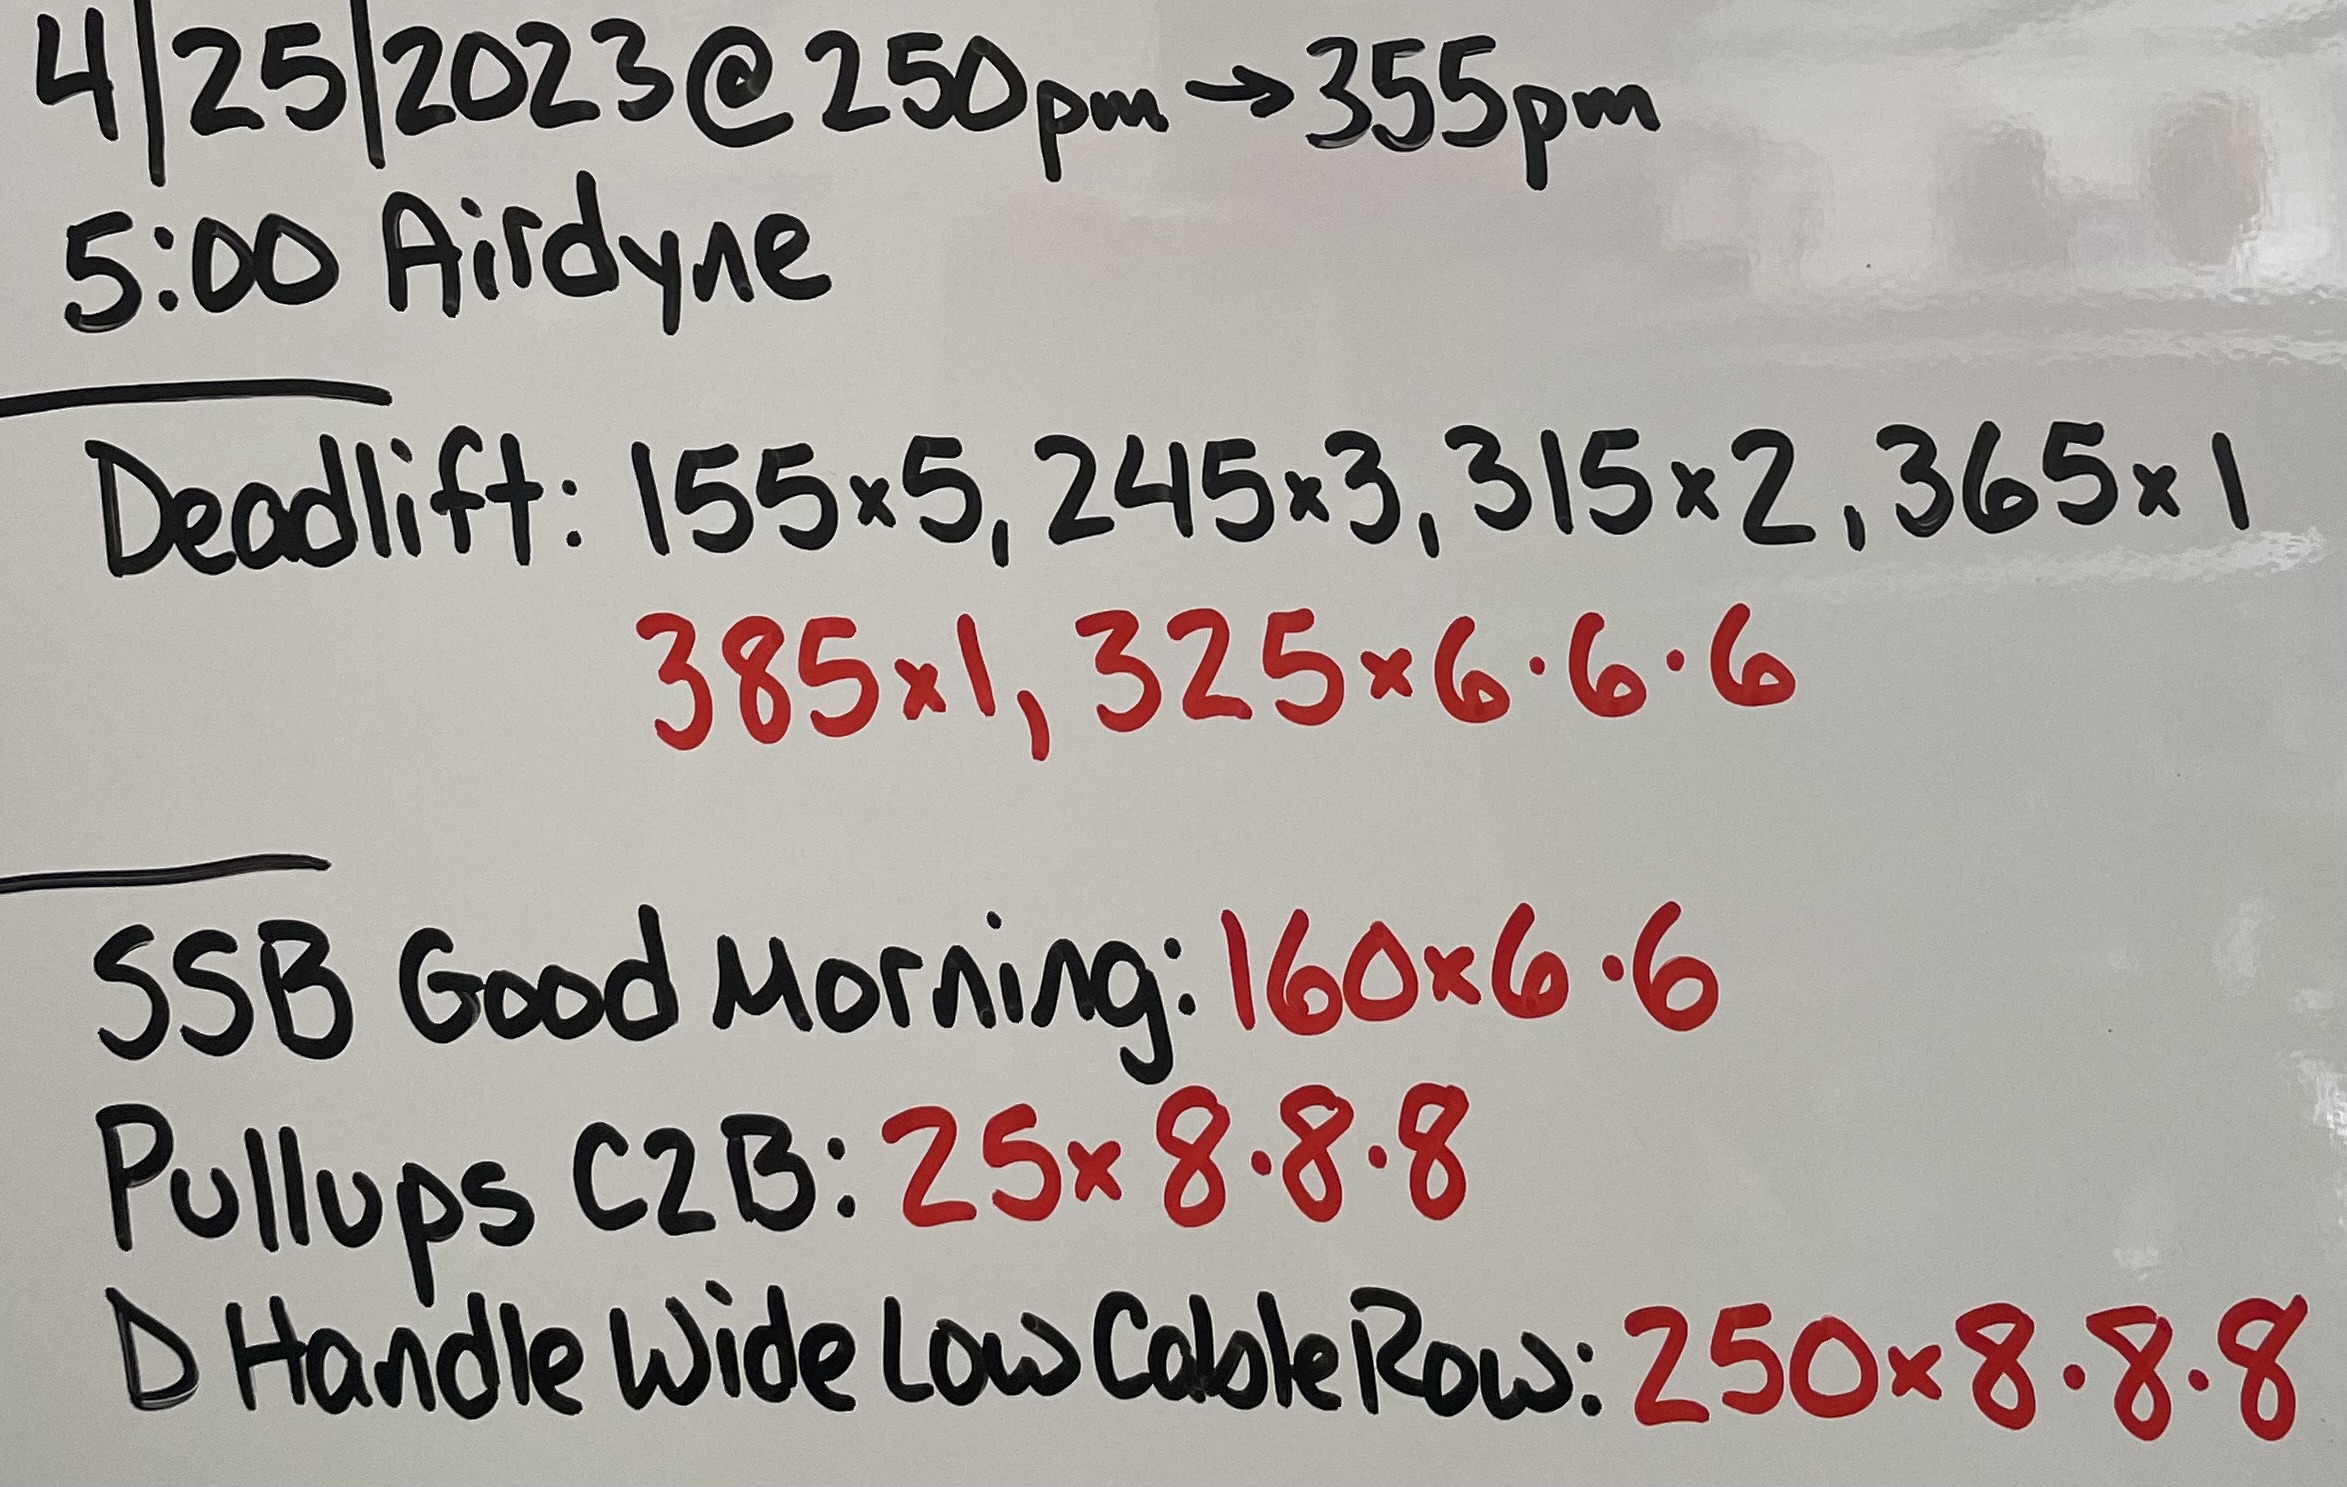 4/25/2023@250pm→355pm
5:00 Airdyne
Deadlift: 155x5, 245x3, 315x2, 365x1
385x1, 325x6·6·6
SSB Good Morning: 160x6·6
Pullups C2B: 25x 8·8·8
D Handle Wide Low Cable Row: 250x8·8·8